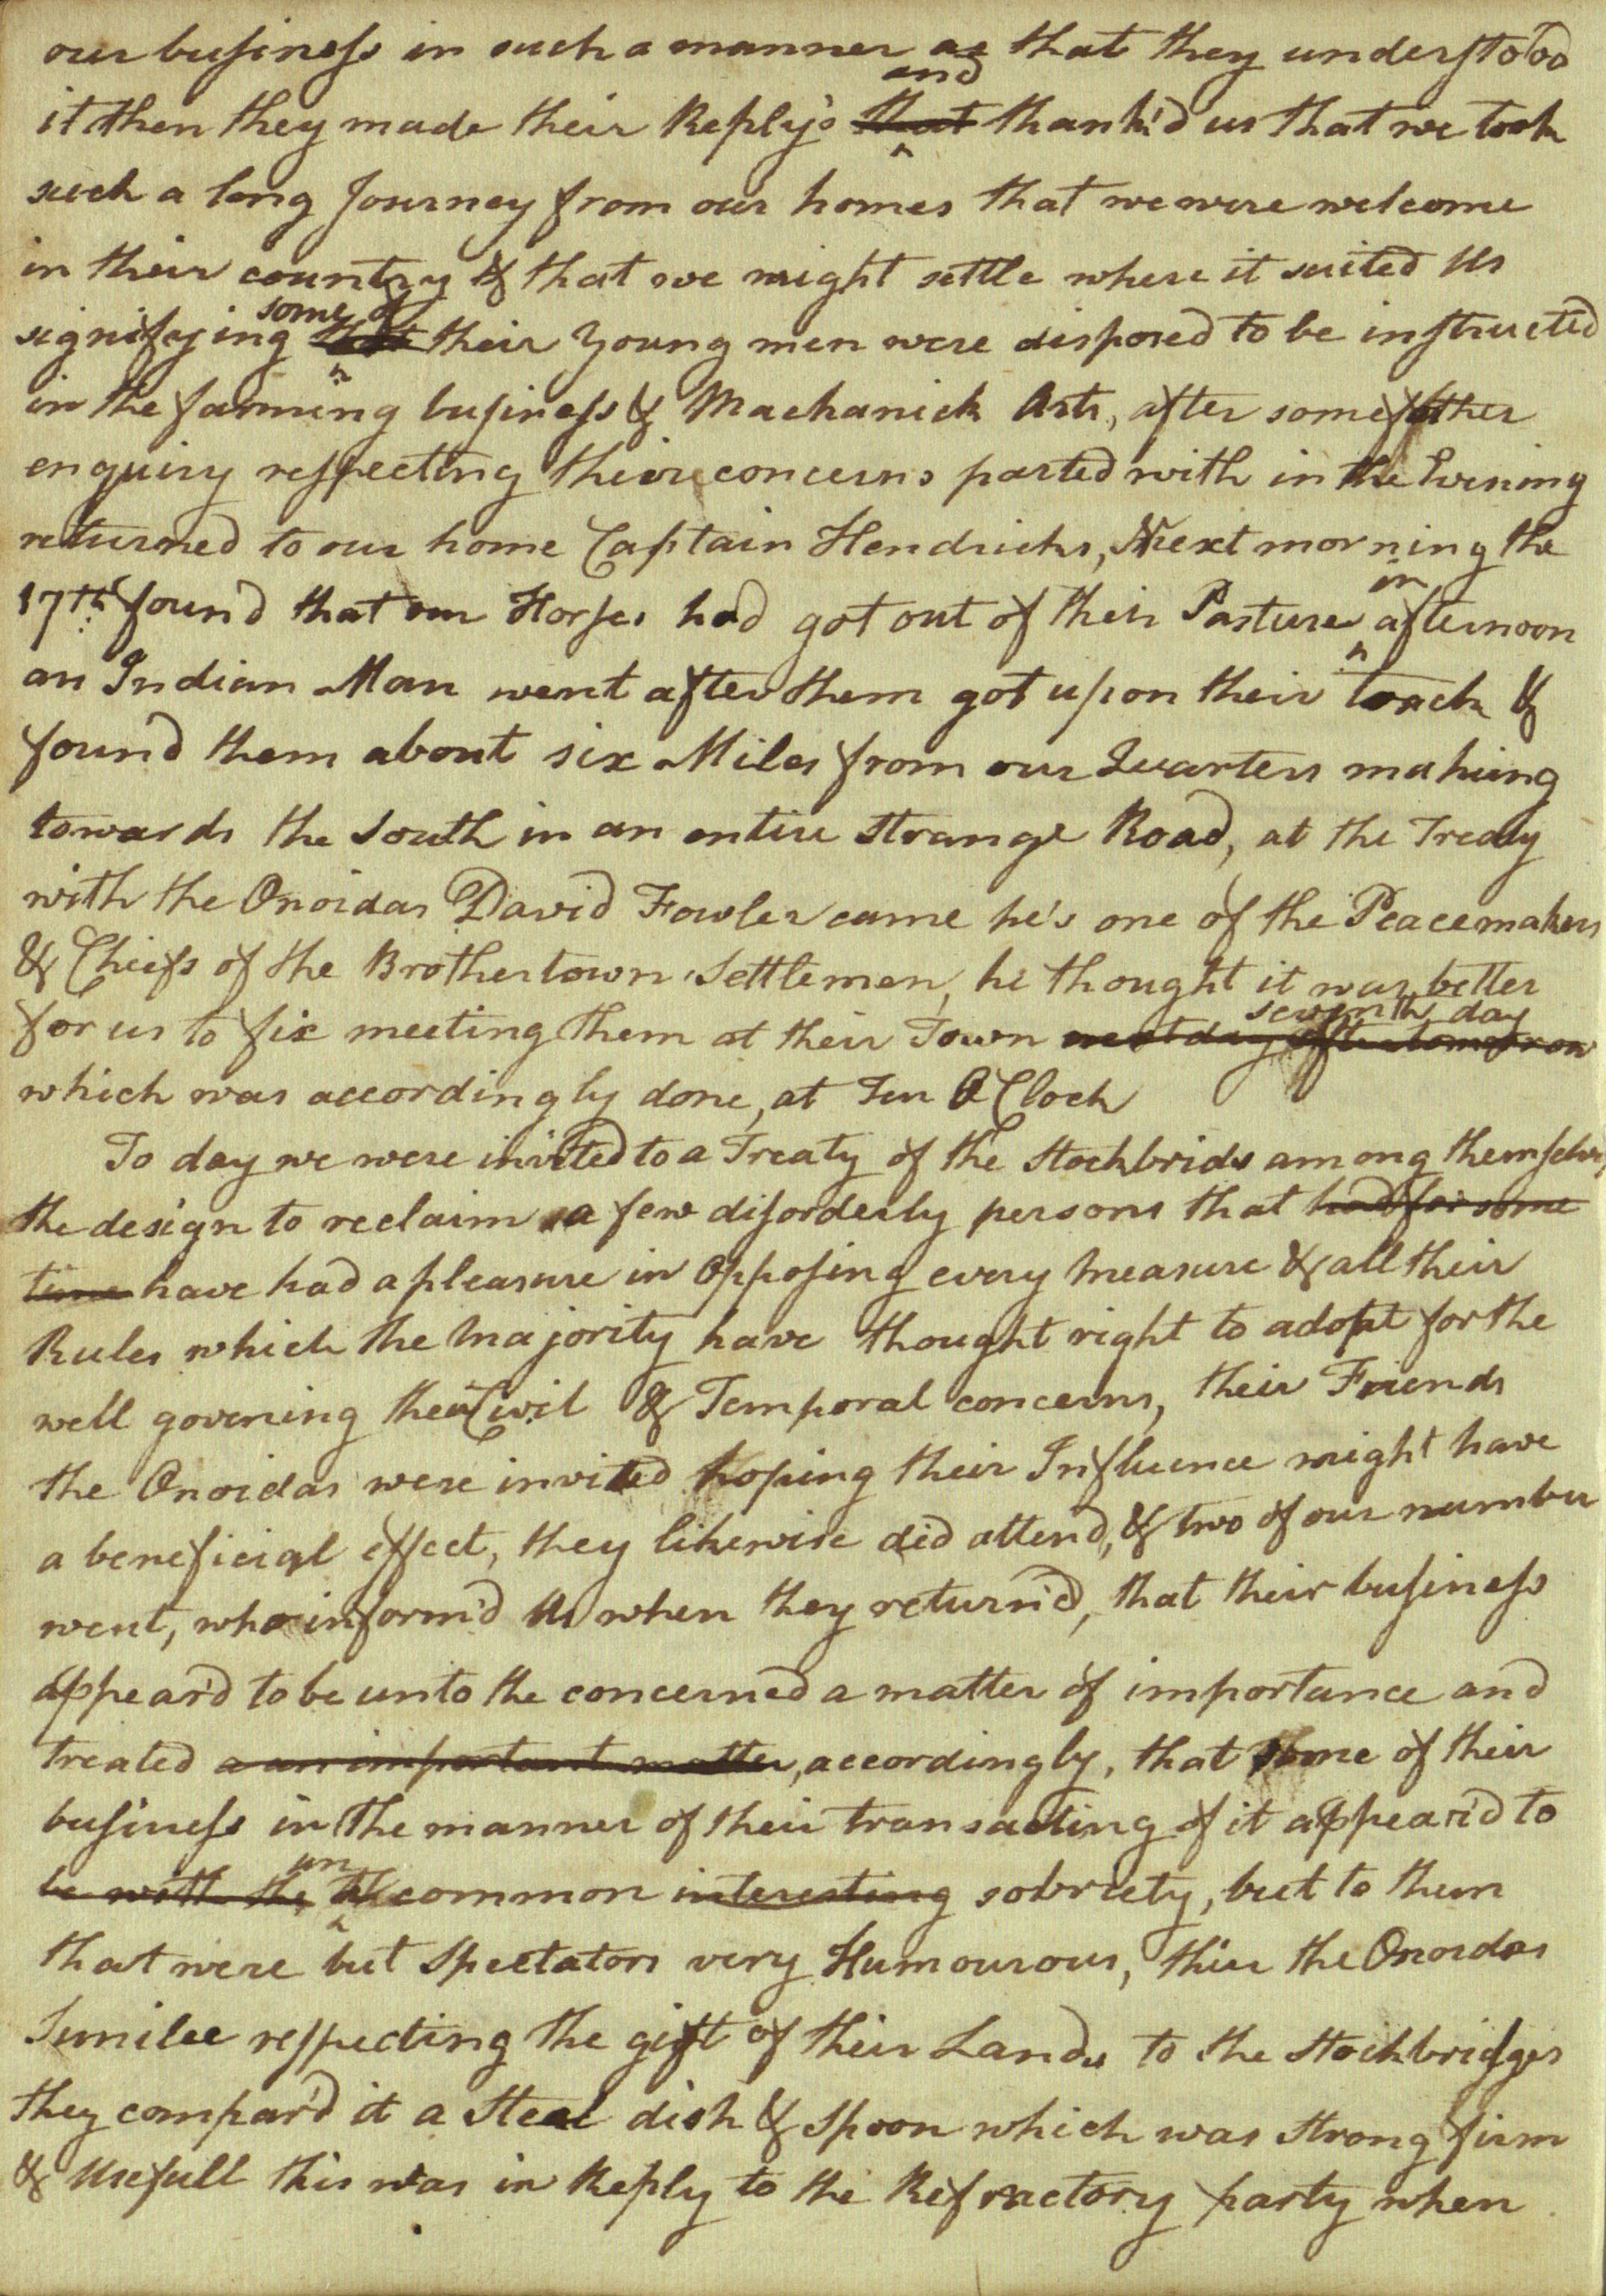 our business in such a manner as that they understood
it then they made their Reply's and that thank'd us that we took
such a long Journey from our homes that we were welcome
in their country & that we might settle where it suited us
signifying some of that their young men were disposed to be instructed
in the farming business & Machanick Arts, after some other
enquiry respecting their concerns parted with in the Evening
returned to our home Captain Hendricks, Next morning the
17th found that our Horses had got out of their Pasture in afternoon
an Indian Man went after them got upon their track &
found them about six Miles from our Quarters making
towards the South in an entire strange Road, at the Treaty
with the Onoidas David Fowler came he's one of the Peacemakers
& Chiefs of the Brothertown Settlemen, he thought it was better
for us to fix meeting them at their Town seventh day next day after tomorrow
which was accordingly done, at Ten O Clock
To day we were invited to a Treaty of the Stockbrids among themselves,
the design to reclaim a few disorderly persons that had for some
time have had a pleasure in opposing every measure & all their
Rules which the Majority have thought right to adopt for the
well governing their Civil & Temporal concerns, their Friends
the Onoidas were invited hoping their Influence might have
a beneficial effect, they likewise did attend, & two of our number
went, who inform'd us when they return'd, that their business
appear'd to be unto the concerned a matter of importance and
treated a an important matter, accordingly, that some of their
business in the manner of their transacting of it appear'd to
be with the un common interesting sobriety, but to them
that were but Spectators very Humourous, thier the Onoidas
Simile respecting the gift of their Lands to the Stockbridges
they compar'd it a Steal dish & Spoon which was strong firm
& Usefull this was in Reply to the Refractory party when